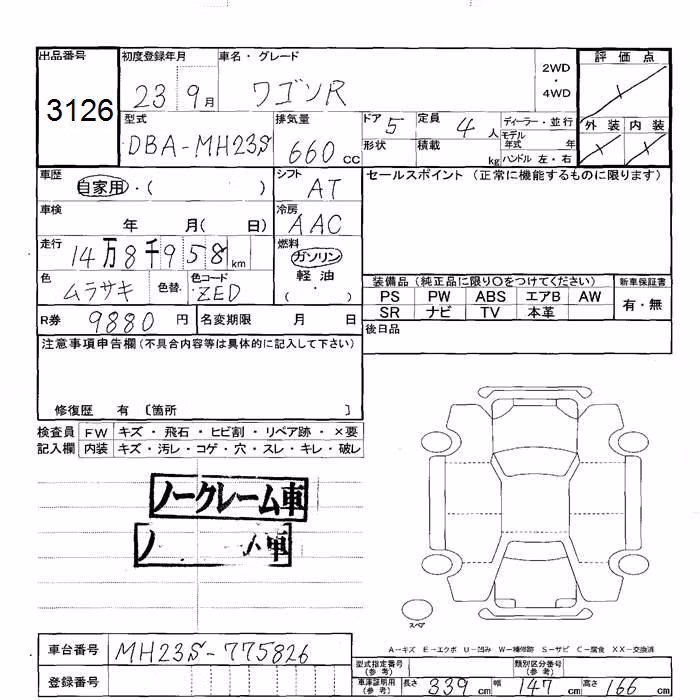 出品番号 初度登録年月 車名・グレード 2WD・4WD 評価点
3126 23 9月 ワゴンR
型式 排気量 ドア 5 定員 4人 ディーラー・並行 外装 内装
DBA-MH23S 660cc 形状 積載 kg モデル年式 年
ハンドル 左・右
車歴 自家用・( ) シフト AT セールスポイント(正常に機能するものに限ります)
車検 年 月( 日) 冷房 AAC
走行 14万8千958km 燃料 ガソリン
軽油
・( )
色 ムラサキ 色替 色コード ZED
装備品(純正品に限り〇をつけてください) 新車保証書
PS PW ABS エアB AW 有・無
SR ナビ TV 本革
R券 9880円 名変期限 月 日 後日品
注意事項申告欄(不具合内容等は具体的に記入して下さい)
修復歴 有 〔箇所 〕
検査員 FW キズ・飛石・ヒビ割・リペア跡・×要
記入欄 内装 キズ・汚レ・コゲ・穴・スレ・キレ・破レ
ノークレーム車
ノ 車
スペア
A-キズ E-エクボ U-凹み W-補修跡 S-サビ C-腐食 XX-交換済
車台番号 MH23S-775826
登録番号
型式指定番号(参考) 類別区分番号(参考)
車庫証明用(参考) 長さ 339cm 幅 147cm 高さ 166cm